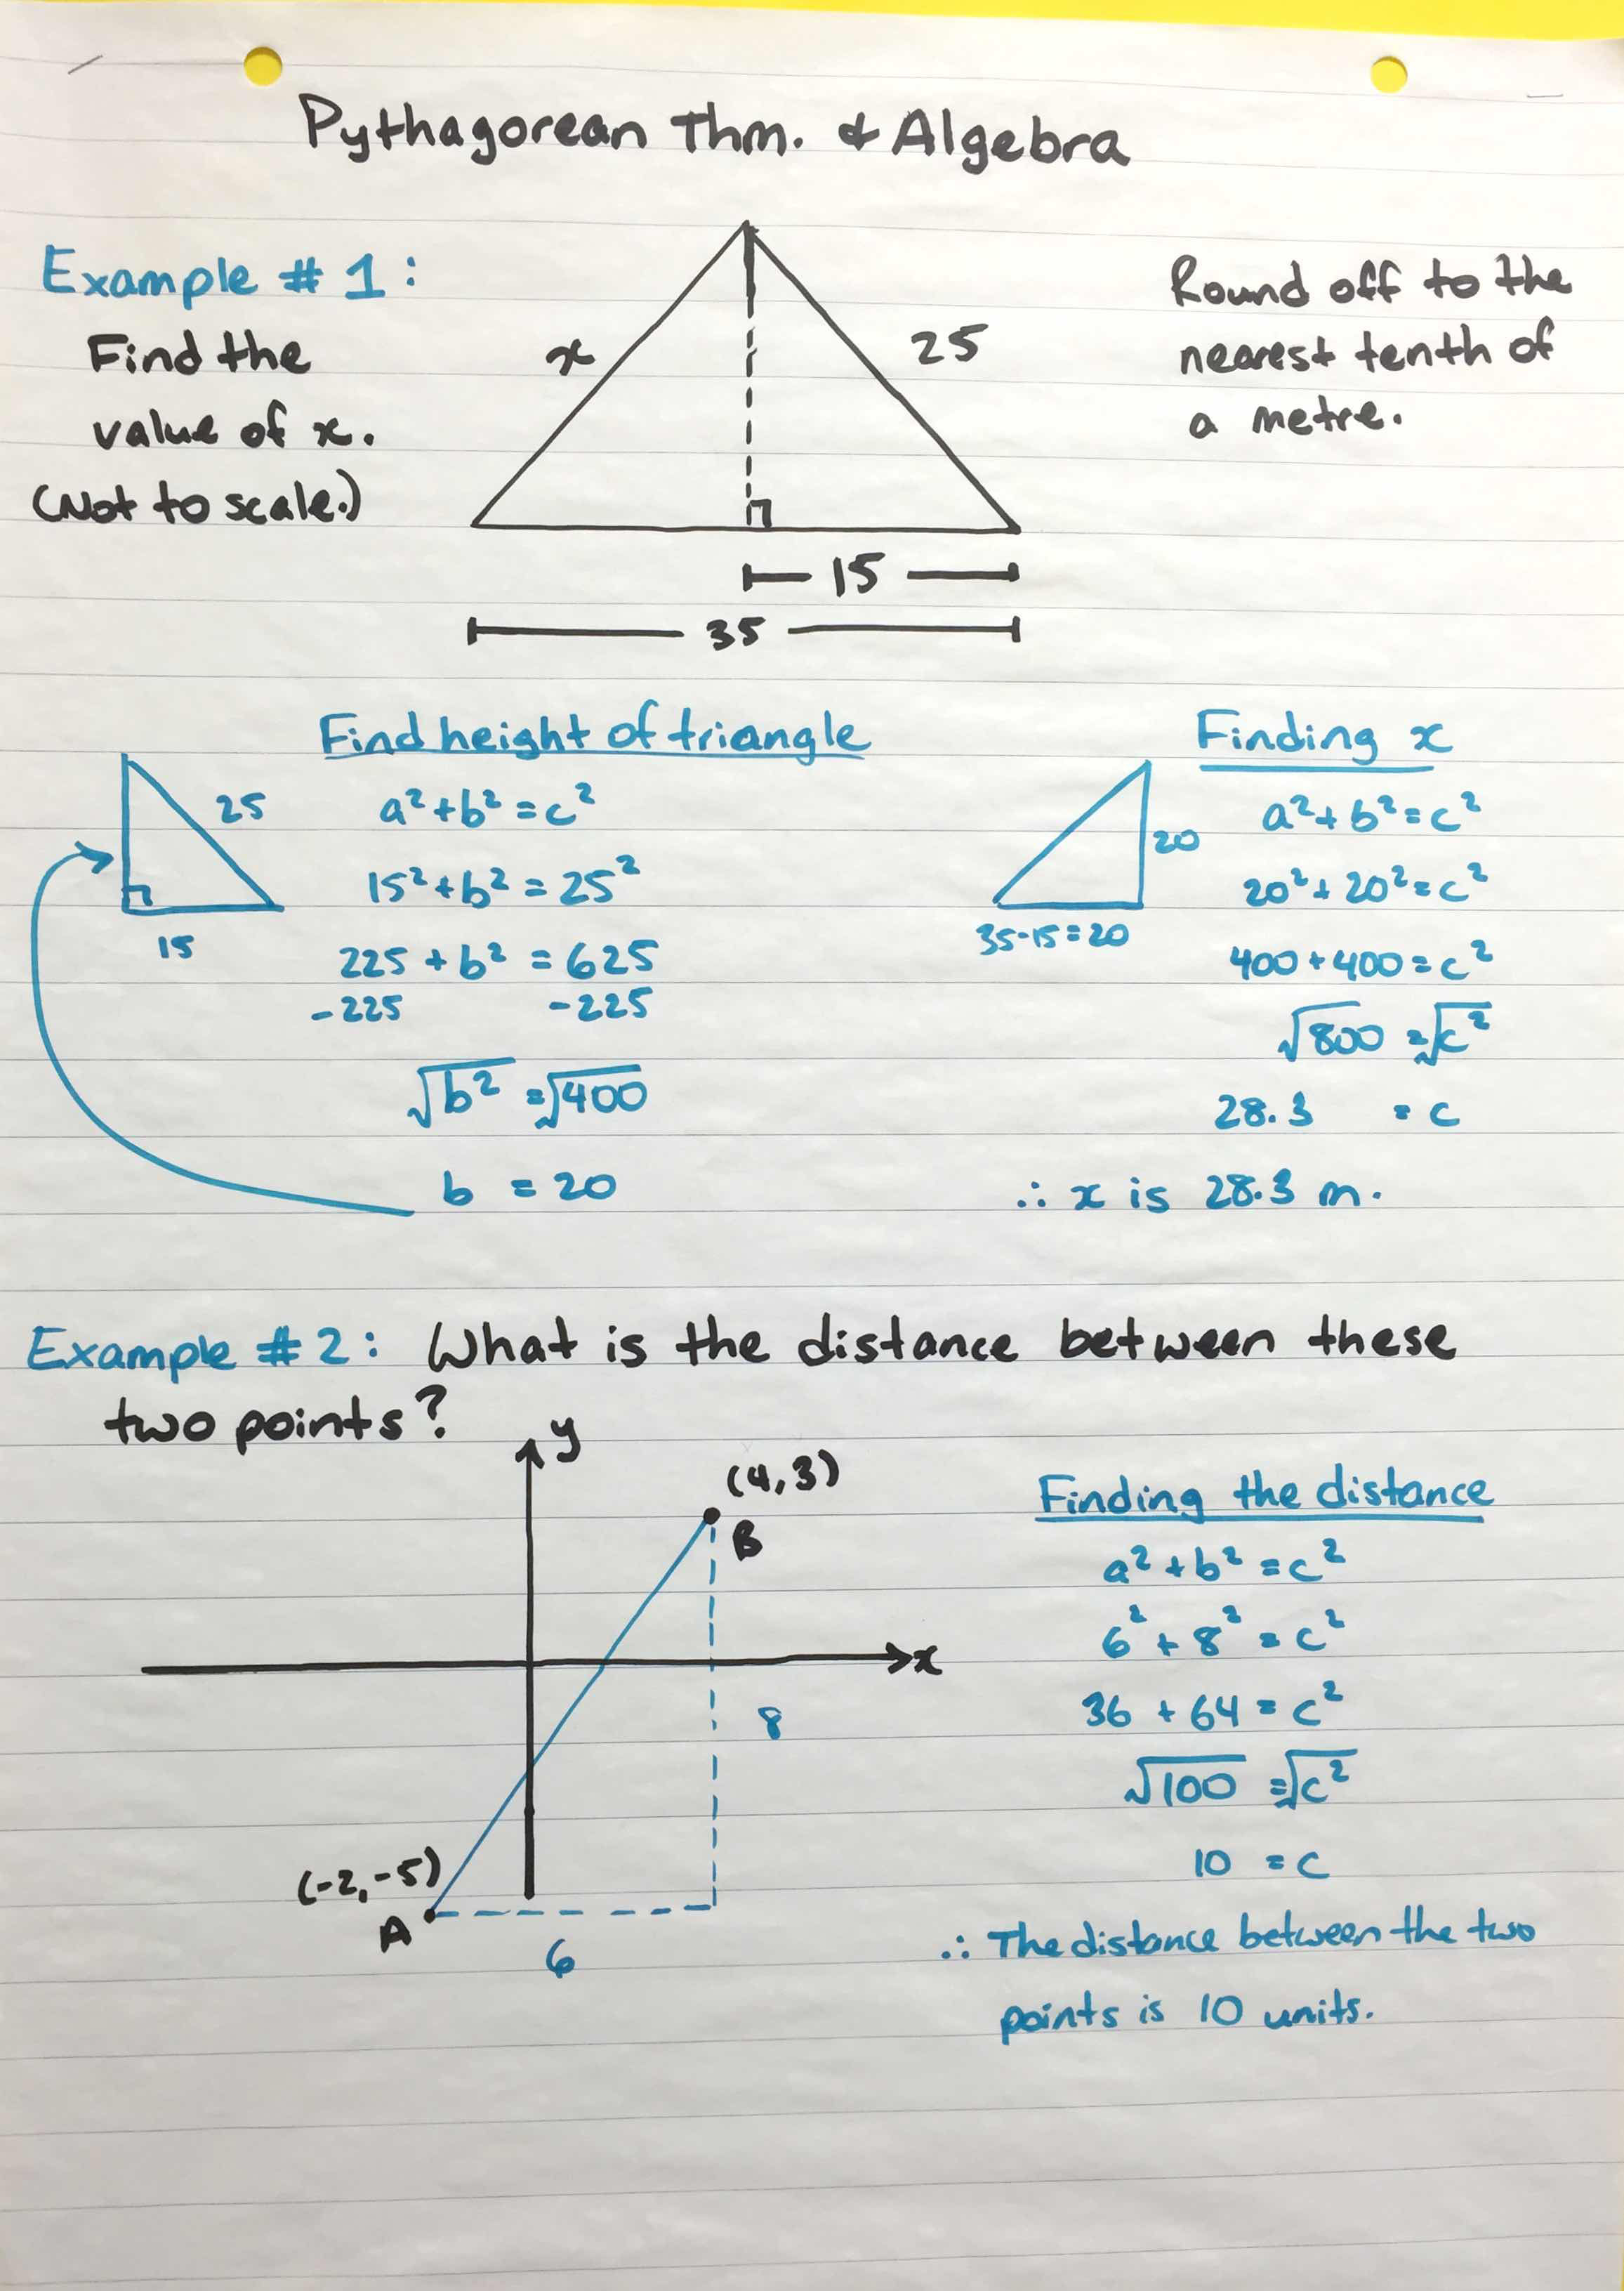 Pythagorean Thm. & Algebra
Example # 1:
Find the
value of x.
(Not to scale.)
x
25
15
35
Round off to the
nearest tenth of
a metre.
Find height of triangle
25
15
a² + b² = c²
15² + b² = 25²
225 + b² = 625
-225 -225
√b² = √400
b = 20
Finding x
20
35-15=20
a² + b² = c²
20² + 20² = c²
400 + 400 = c²
√800 = √c²
28.3 = c
∴ x is 28.3 m.
Example # 2: What is the distance between these
two points?
y
(4,3)
B
x
8
(-2,-5)
A
6
Finding the distance
a² + b² = c²
6² + 8² = c²
36 + 64 = c²
√100 = √c²
10 = c
∴ The distance between the two
points is 10 units.